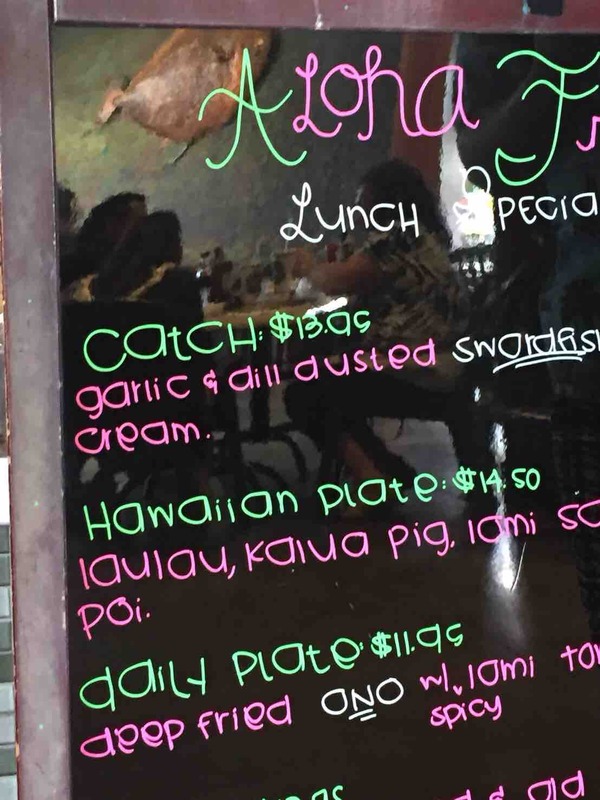 Aloha F
Lunch Specia
Catch: $13.95
garlic & dill dusted swordfis
cream.
Hawaiian Plate: $14.50
laulau, Kalua Pig, lomi sa
Poi.
daily Plate: $11.95
deep fried ONO w/ lomi to
spicy